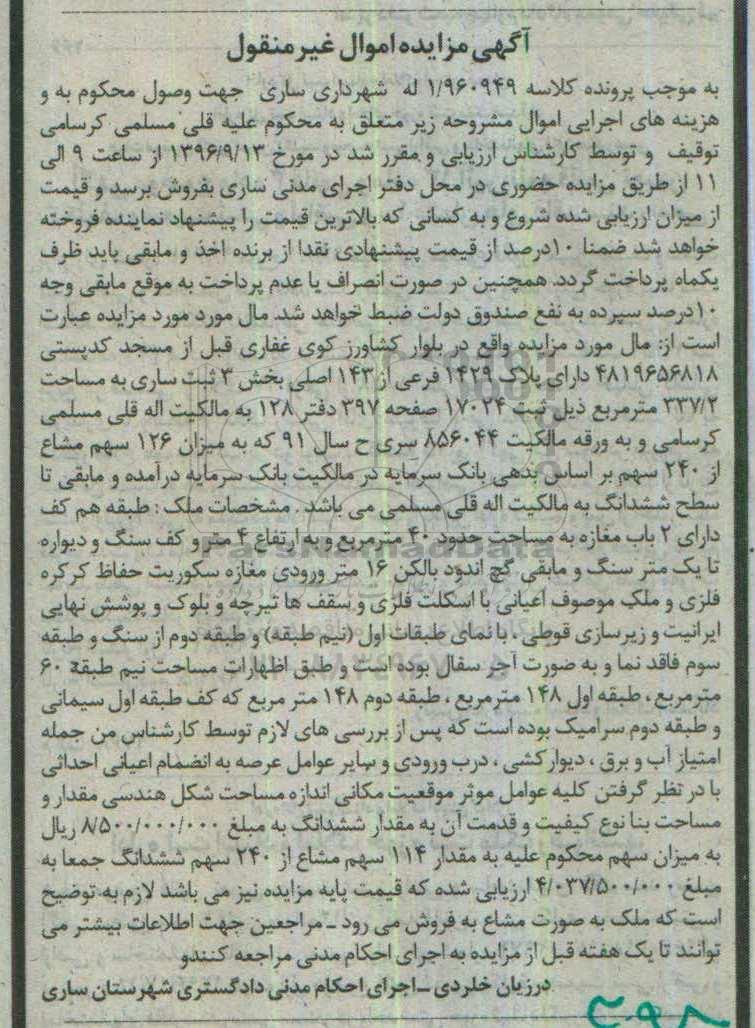 آگهی مزایده اموال غیر منقول
به موجب پرونده کلاسه ۱/۹۶۰۹۴۹ له شهرداری ساری جهت وصول محکوم به و
هزینه های اجرایی اموال مشروحه زیر متعلق به محکوم علیه قلی مسلمی کرسامی
توقیف و توسط کارشناس ارزیابی و مقرر شد در مورخ ۱۳۹۶/۹/۱۳ از ساعت ۹ الی
۱۱ از طریق مزایده حضوری در محل دفتر اجرای مدنی ساری بفروش برسد و قیمت
از میزان ارزیابی شده شروع و به کسانی که بالاترین قیمت را پیشنهاد نماینده فروخته
خواهد شد ضمنا ۱۰درصد از قیمت پیشنهادی نقدا از برنده اخذ و مابقی باید ظرف
یکماه پرداخت گردد. همچنین در صورت انصراف یا عدم پرداخت به موقع مابقی وجه
۱۰درصد سپرده به نفع صندوق دولت ضبط خواهد شد. مال مورد مورد مزایده عبارت
است از: مال مورد مزایده واقع در بلوار کشاورز کوی غفاری قبل از مسجد کدپستی
۴۸۱۹۶۵۶۸۱۸ دارای پلاک ۱۴۲۹ فرعی از ۱۴۳ اصلی بخش ۳ ثبت ساری به مساحت
۳۳۷/۲ مترمربع ذیل ثبت ۱۷۰۲۴ صفحه ۳۹۷ دفتر ۱۲۸ به مالکیت اله قلی مسلمی
کرسامی و به ورقه مالکیت ۸۵۶۰۴۴ سری ح سال ۹۱ که به میزان ۱۲۶ سهم مشاع
از ۲۴۰ سهم بر اساس بدهی بانک سرمایه در مالکیت بانک سرمایه درآمده و مابقی تا
سطح ششدانگ به مالکیت اله قلی مسلمی می باشد . مشخصات ملک : طبقه هم کف
دارای ۲ باب مغازه به مساحت حدود ۴۰ مترمربع و به ارتفاع ۴ متر و کف سنگ و دیواره
تا یک متر سنگ و مابقی گچ اندود بالکن ۱۶ متر ورودی مغازه سکوریت حفاظ کرکره
فلزی و ملک موصوف اعیانی با اسکلت فلزی و سقف ها تیرچه و بلوک و پوشش نهایی
ایرانیت و زیرسازی قوطی ، با نمای طبقات اول (نیم طبقه) و طبقه دوم از سنگ و طبقه
سوم فاقد نما و به صورت آجر سفال بوده است و طبق اظهارات مساحت نیم طبقه ۶۰
مترمربع ، طبقه اول ۱۴۸ مترمربع ، طبقه دوم ۱۴۸ متر مربع که کف طبقه اول سیمانی
و طبقه دوم سرامیک بوده است که پس از بررسی های لازم توسط کارشناس من جمله
امتیاز آب و برق ، دیوارکشی ، درب ورودی و سایر عوامل عرصه به انضمام اعیانی احداثی
با در نظر گرفتن کلیه عوامل موثر موقعیت مکانی اندازه مساحت شکل هندسی مقدار و
مساحت بنا نوع کیفیت و قدمت آن به مقدار ششدانگ به مبلغ ۸/۵۰۰/۰۰۰/۰۰۰ ریال
به میزان سهم محکوم علیه به مقدار ۱۱۴ سهم مشاع از ۲۴۰ سهم ششدانگ جمعا به
مبلغ ۴/۰۳۷/۵۰۰/۰۰۰ ارزیابی شده که قیمت پایه مزایده نیز می باشد لازم به توضیح
است که ملک به صورت مشاع به فروش می رود ـ مراجعین جهت اطلاعات بیشتر می
توانند تا یک هفته قبل از مزایده به اجرای احکام مدنی مراجعه کنندو
درزیان خلردی ـ اجرای احکام مدنی دادگستری شهرستان ساری
ParsNamadData